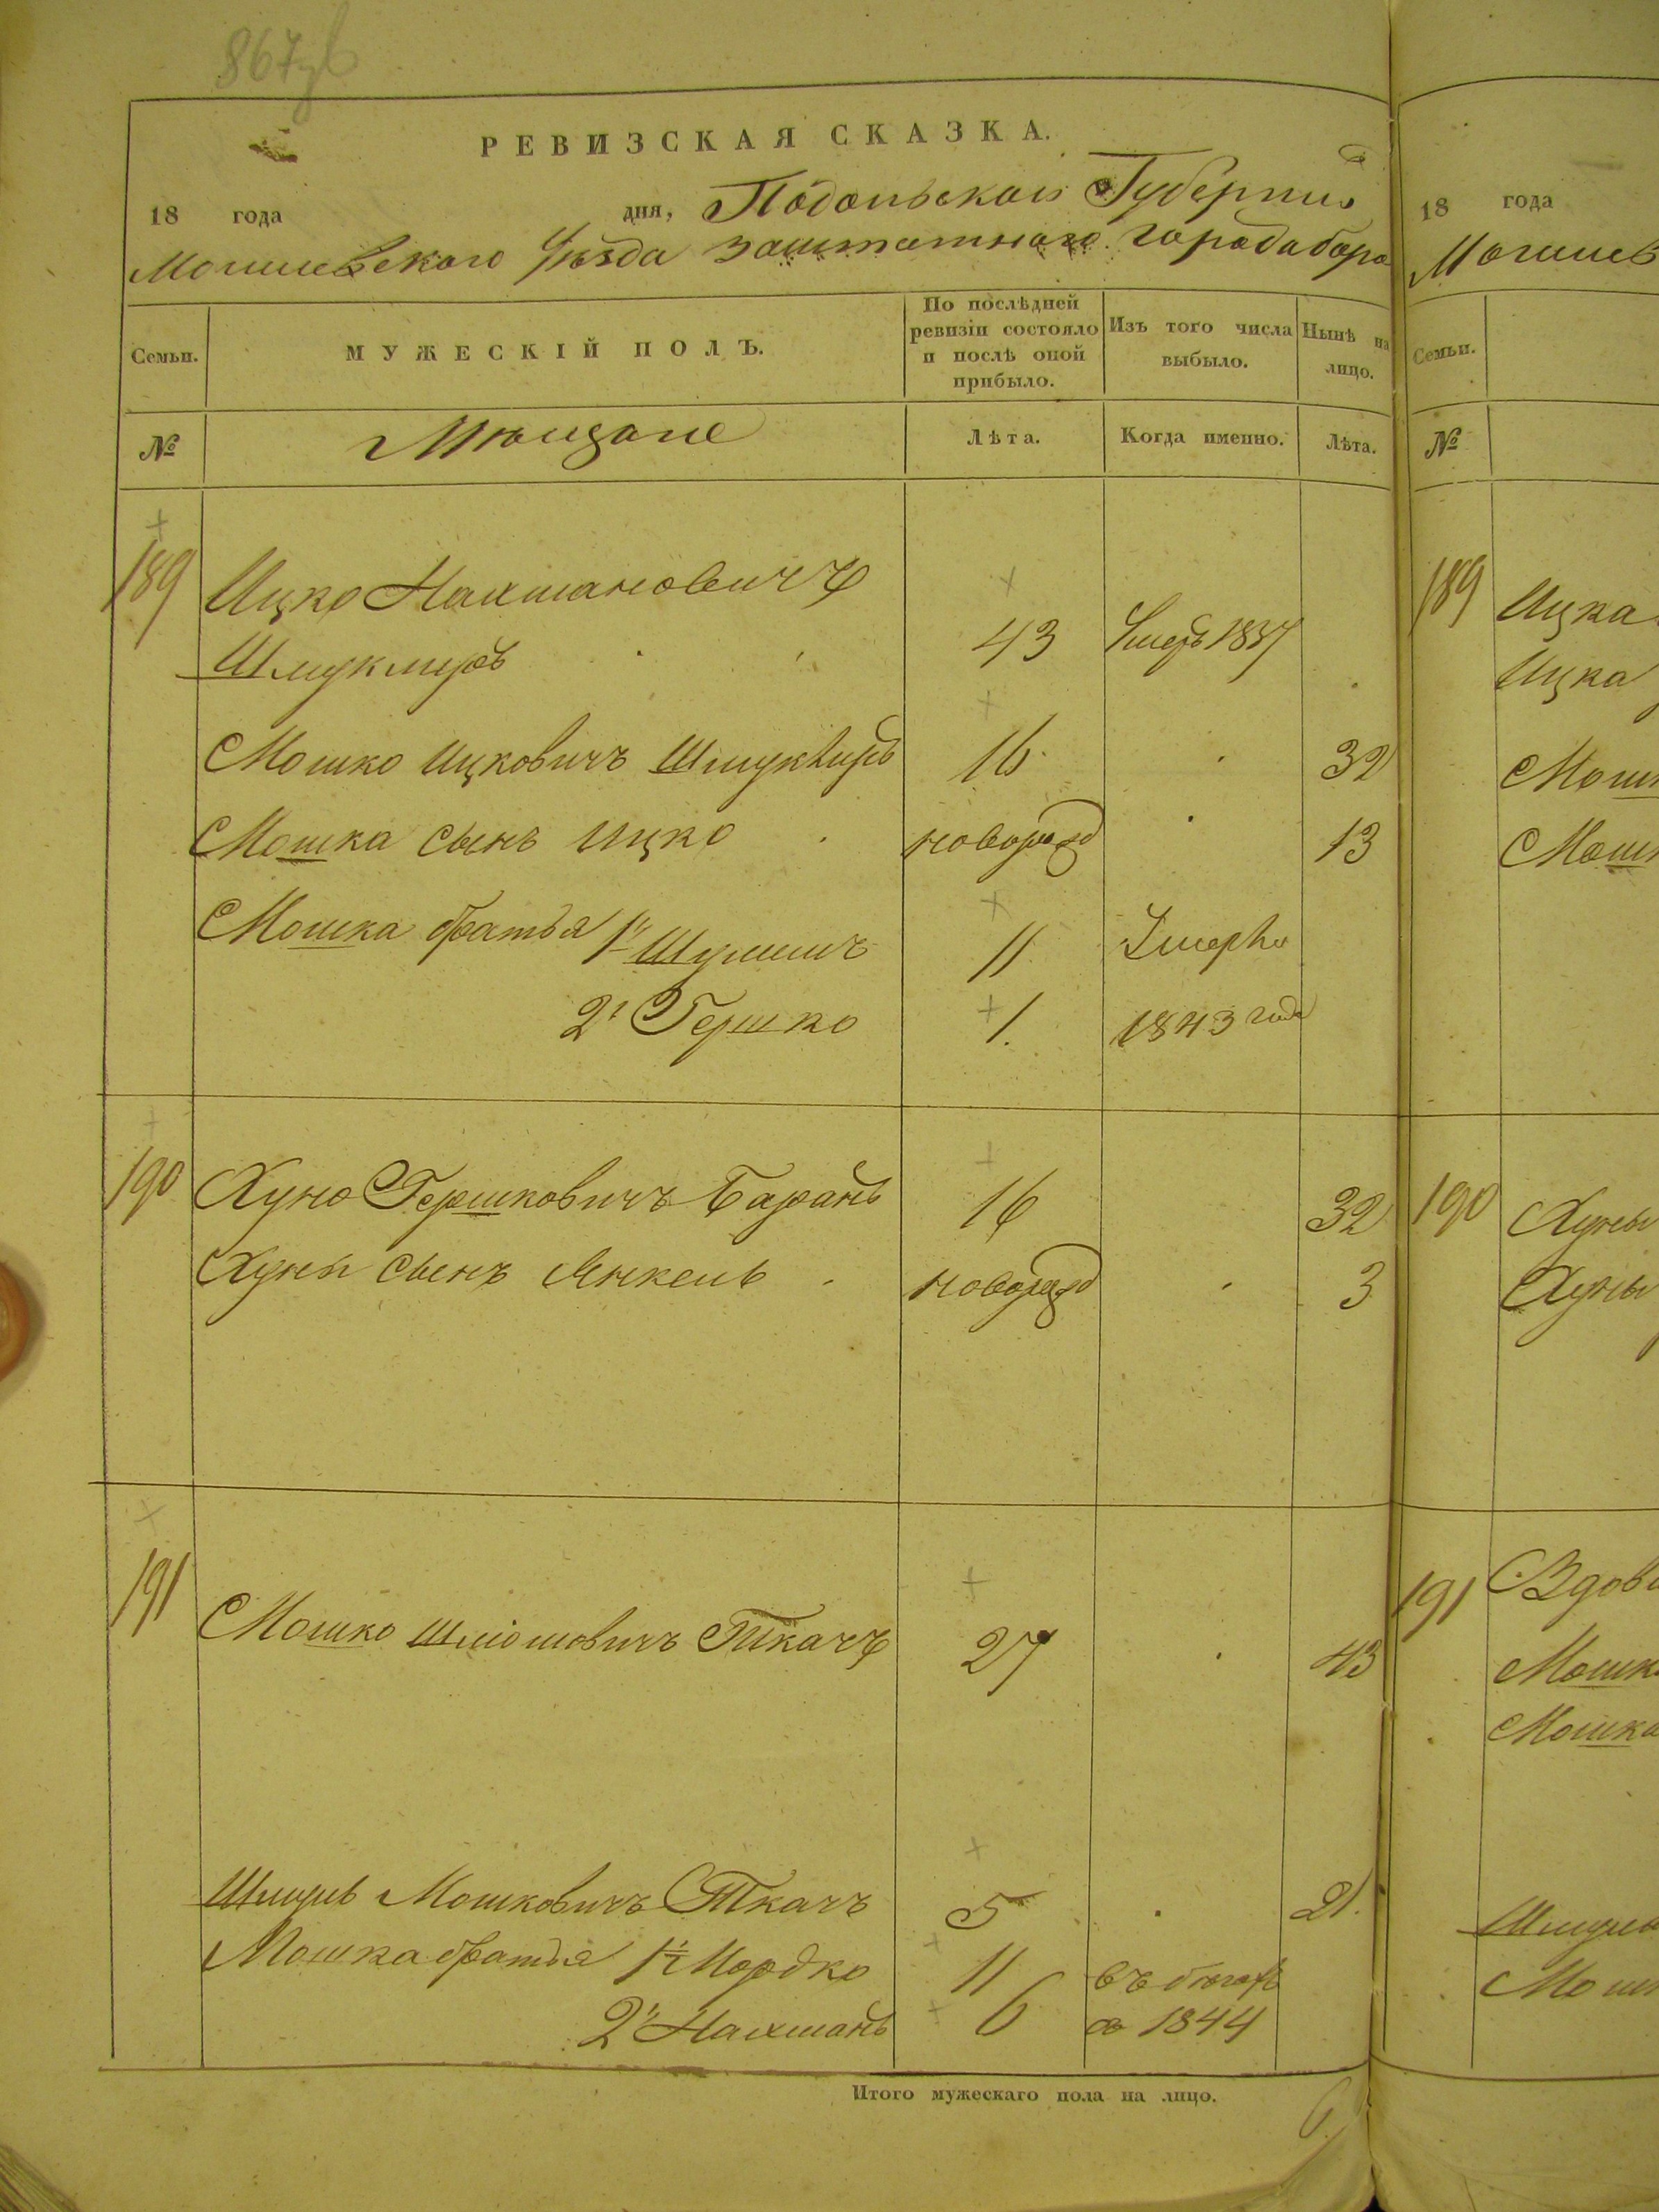 РЕВИЗСКАЯ СКАЗКА.
18 года дня, Подольской Губерніи
Могилевского Уѣзда заштатного города бара
Семьи.
МУЖЕСКІЙ ПОЛЪ.
По послѣдней
ревизіи состояло
и послѣ оной
прибыло.
Изъ того числа
выбыло.
Нынѣ на
лицо.
№
Мѣщане
Лѣта.
Когда именно.
Лѣта.
189 Ицко Нахмановичъ
43 1837
Мошко Ицковичъ 16 32
Мошка сынъ Ицко новорожд 13
Мошка братья 1й 11
2й Гершко 1. 1843 года
190 Хуно Гершковичъ Баранъ 16 32
Хуны сынъ Янкель новорожд 3
191 Мошко Шліомовичъ Ткачъ 27 43
Шмуль Мошковичъ Ткачъ 5 21.
Мошка братья 1й Мордко 11 въ бѣгахъ
2й Нахманъ 6 1844
Итого мужескаго пола на лицо. 6
18 года
Могилев
Семьи.
№
189 Ицка
Ицка
Мошк
Мошк
190 Хуны
Хуны
191 Вдов
Мошк
Мошка
Шмуля
Мошк